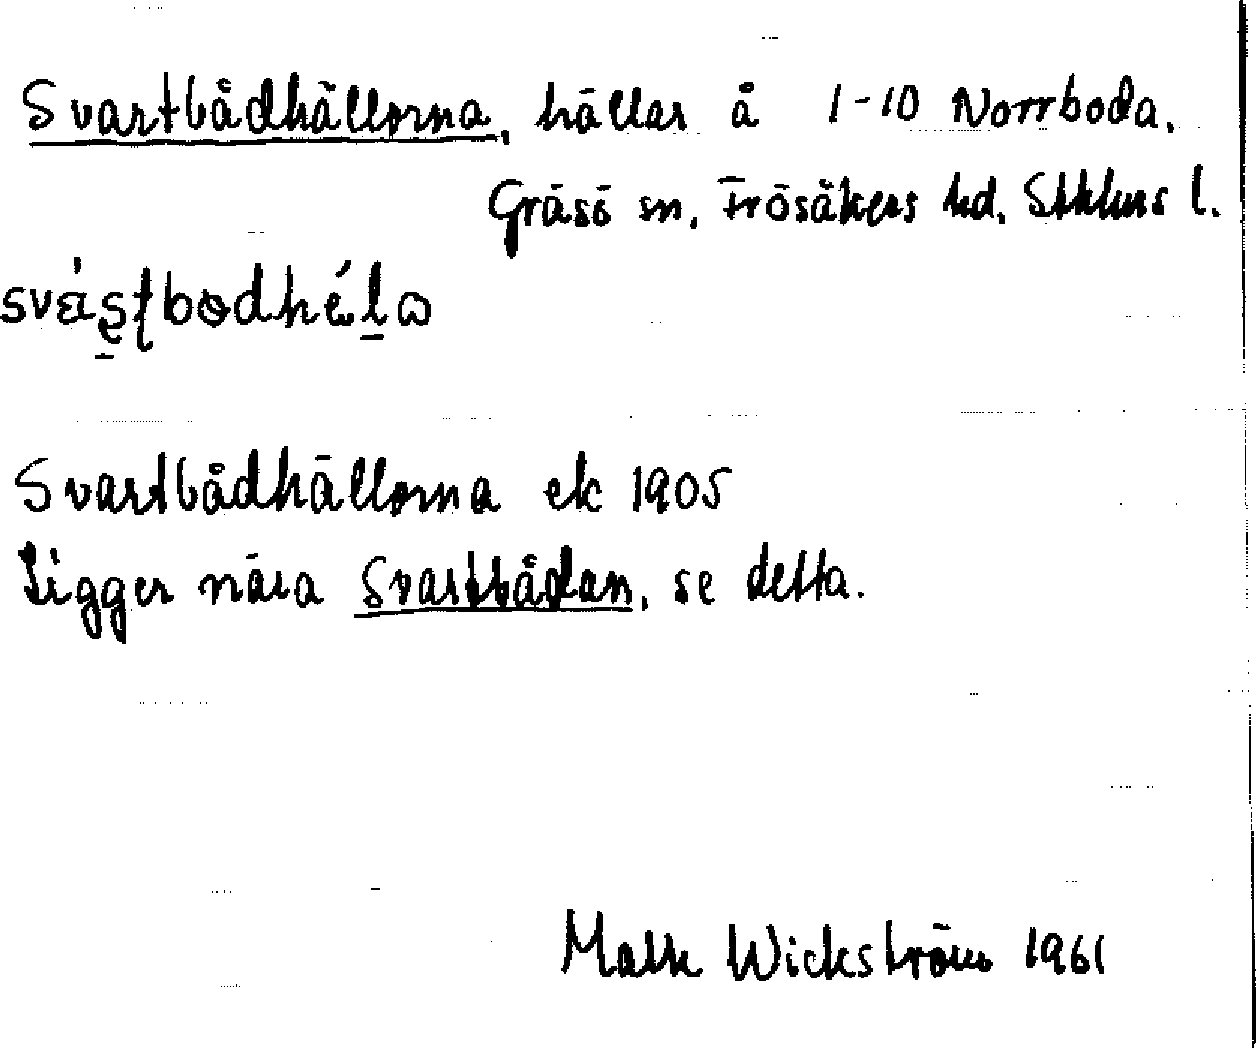 Svartbådhällorna, hällar å 1-10 Norrboda,
Gräsö sn, Frösåkers hd, Sthlms l.
Svartbådhällorna ek 1905
Ligger nära Svartbådan, se detta.
Wickström 1961